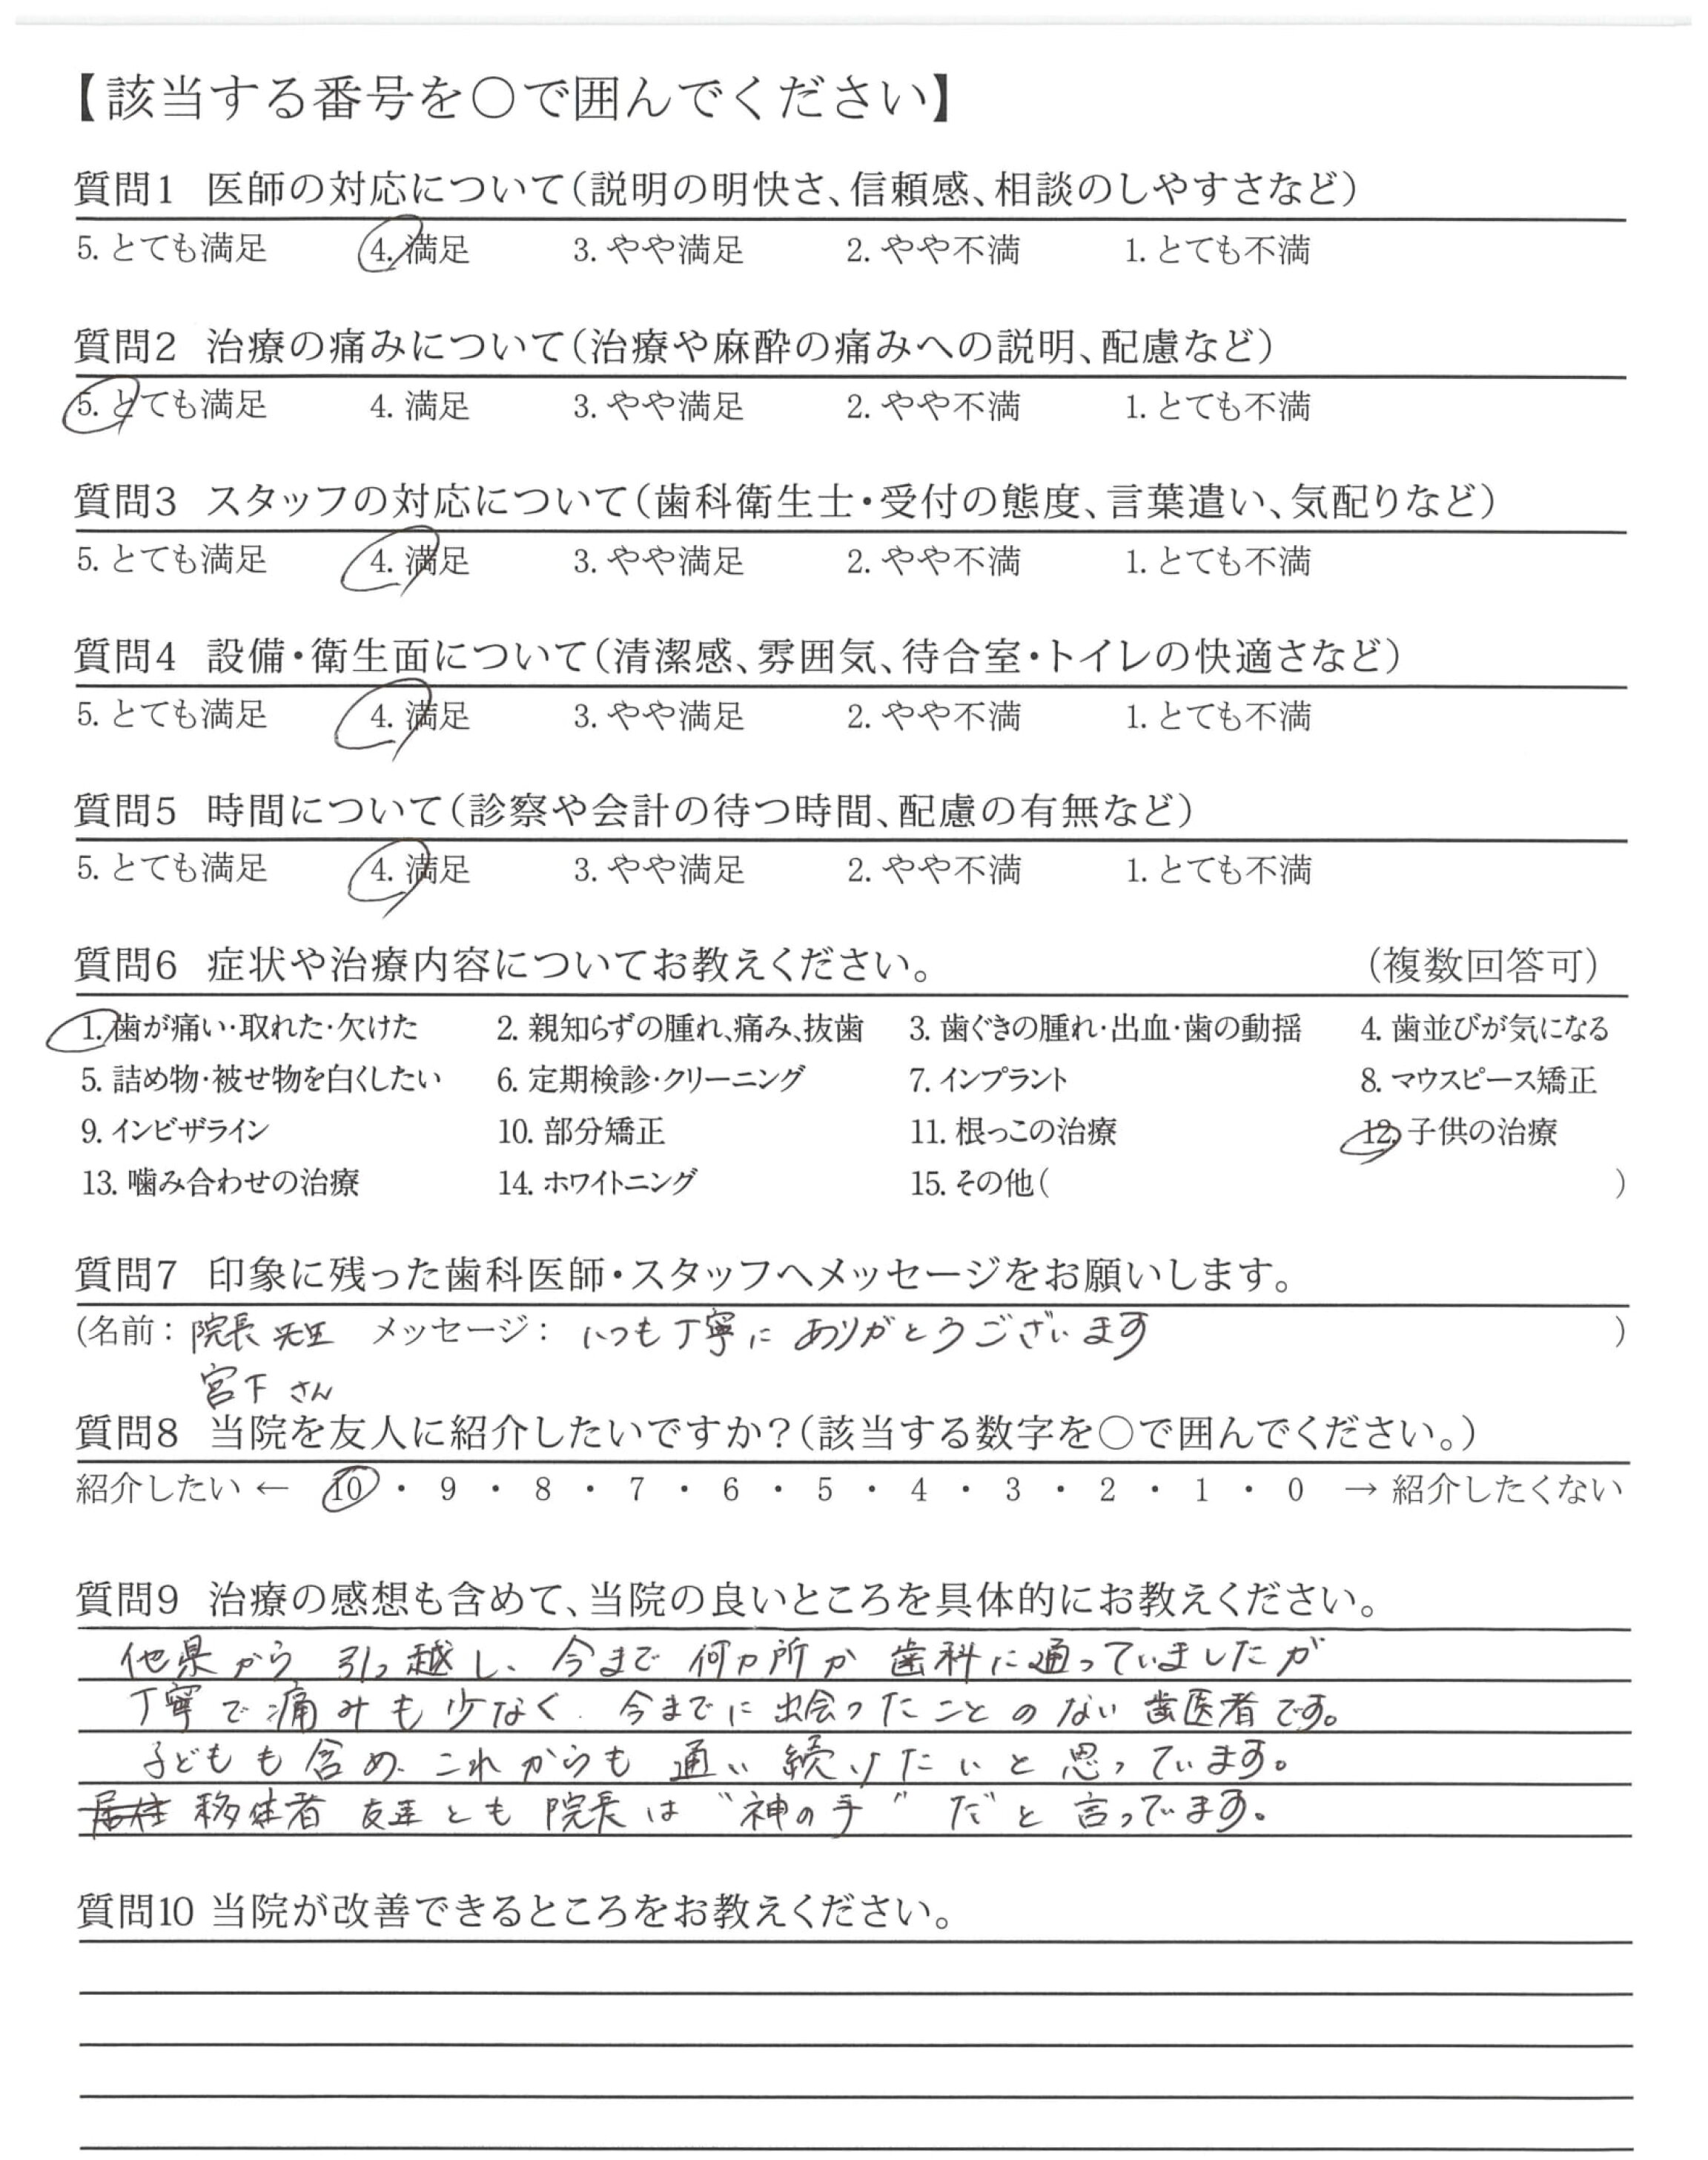 【該当する番号を○で囲んでください】
質問1 医師の対応について（説明の明快さ、信頼感、相談のしやすさなど）
5. とても満足 4. 満足 3. やや満足 2. やや不満 1. とても不満
質問2 治療の痛みについて（治療や麻酔の痛みへの説明、配慮など）
5. とても満足 4. 満足 3. やや満足 2. やや不満 1. とても不満
質問3 スタッフの対応について（歯科衛生士・受付の態度、言葉遣い、気配りなど）
5. とても満足 4. 満足 3. やや満足 2. やや不満 1. とても不満
質問4 設備・衛生面について（清潔感、雰囲気、待合室・トイレの快適さなど）
5. とても満足 4. 満足 3. やや満足 2. やや不満 1. とても不満
質問5 時間について（診察や会計の待つ時間、配慮の有無など）
5. とても満足 4. 満足 3. やや満足 2. やや不満 1. とても不満
質問6 症状や治療内容についてお教えください。 （複数回答可）
1. 歯が痛い・取れた・欠けた 2. 親知らずの腫れ、痛み、抜歯 3. 歯ぐきの腫れ・出血・歯の動揺 4. 歯並びが気になる
5. 詰め物・被せ物を白くしたい 6. 定期検診・クリーニング 7. インプラント 8. マウスピース矯正
9. インビザライン 10. 部分矯正 11. 根っこの治療 12. 子供の治療
13. 噛み合わせの治療 14. ホワイトニング 15. その他（ ）
質問7 印象に残った歯科医師・スタッフへメッセージをお願いします。
（名前： 院長先生 メッセージ： いつも丁寧に ありがとうございます ）
宮下さん
質問8 当院を友人に紹介したいですか？（該当する数字を○で囲んでください。）
紹介したい ← 10 ・ 9 ・ 8 ・ 7 ・ 6 ・ 5 ・ 4 ・ 3 ・ 2 ・ 1 ・ 0 → 紹介したくない
質問9 治療の感想も含めて、当院の良いところを具体的にお教えください。
他県から 引っ越し、今まで 何カ所か 歯科に通っていましたが
丁寧で痛みも少なく、今までに出会ったことのない歯医者です。
子どもも含め、これからも通い続けたいと思っています。
居住 移住者 友達とも 院長は "神の手" だと言ってます。
質問10 当院が改善できるところをお教えください。